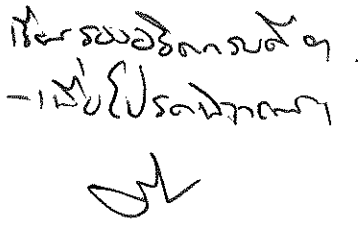 เรียน รองอธิการบดี ฯ
- เพื่อโปรดพิจารณา